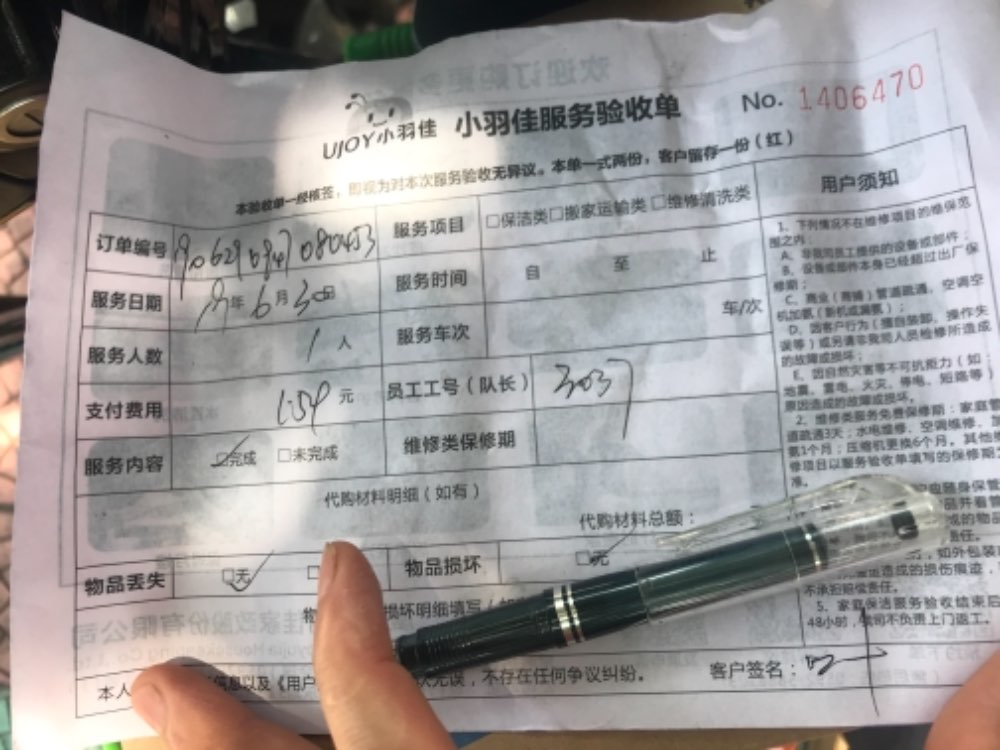 欢迎订购更多
UJOY小羽佳 小羽佳服务验收单 No. 1406470
本验收单一经核签，即视为对本次服务验收无异议。本单一式两份，客户留存一份（红）
订单编号
服务项目 □保洁类□搬家运输类 □维修清洗类
服务日期 年 6 月 30 日
服务时间 自 至 止
服务人数 1 人
服务车次 车/次
支付费用 元
员工工号（队长） 3037
服务内容 □完成 □未完成
维修类保修期
代购材料明细（如有）
代购材料总额：
物品丢失 □无
物品损坏 □无
损坏明细填写
本人 信息以及《用户 无误，不存在任何争议纠纷。
客户签名：
用户须知
1、下列情况不在维修项目的维保范
围之内：
A、非我司员工提供的设备或部件；
B、设备或部件本身已经超过出厂保
修期；
C、商业（商铺）管道疏通、空调空
机加氨（新机或漏氨）；
D、因客户行为（擅自装卸、操作失
误等）或另请非我司人员检修所造成
的故障或损坏；
E、因自然灾害等不可抗拒力（如：
地震、雷电、火灾、停电、短路等）
原因造成的故障或损坏。
2、维修类服务免费保修期：家庭管
道疏通3天；水电维修、空调维修、加
氨1个月；压缩机更换6个月。其他维
修项目以服务验收单填写的保修期为
准。
随身保管
的物品
责任。
，如外包装
造成的损伤痕迹，
不承担赔偿责任。
5、家庭保洁服务验收结束后
48小时，我司不负责上门返工。